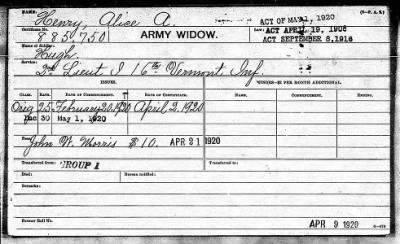 NAME: Henry, Alice A.
ACT OF MAY 1, 1920
Certificate No. 885750
ARMY WIDOW.
LAW: ACT APRIL 19, 1908
ACT SEPTEMBER 8, 1916
Name of Soldier: Hugh
Service: 2d Lieut I 16th Vermont Inf.
ISSUES.
CLASS. RATE. COMMENCEMENT. DATE OF CERTIFICATE. COMMENCEMENT. ENDING.
Orig 25 February 20, 1920 April 2, 1920
Inc 30 May 1, 1920
John W. Morris $10. APR 21 1920
Transferred from: GROUP 1 Transferred to:
Died: Bureau notified:
Remarks:
Former Roll No. APR 9 1920